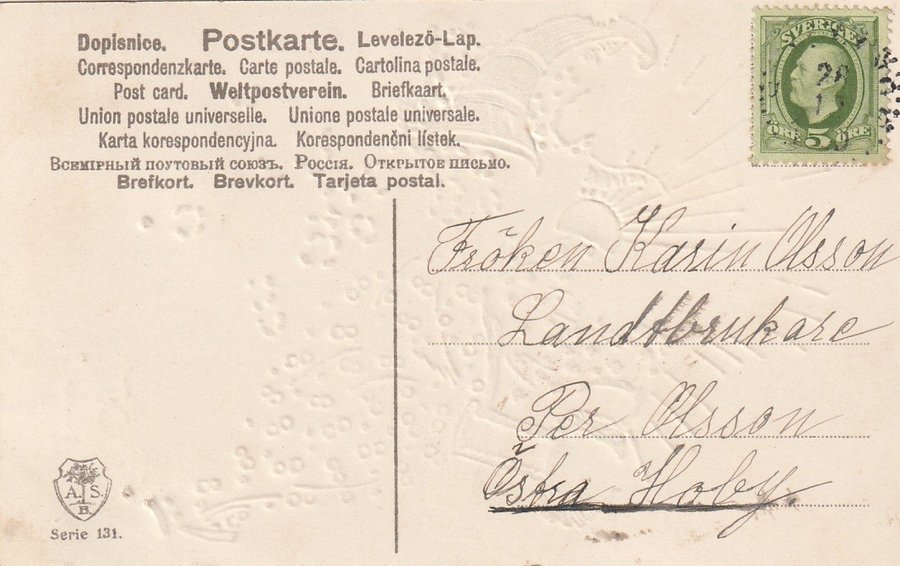 Dopisnice. Postkarte. Levelezö-Lap.
Correspondenzkarte. Carte postale. Cartolina postale.
Post card. Weltpostverein. Briefkaart.
Union postale universelle. Unione postale universale.
Karta korespondencyjna. Korespondenčni lístek.
Всемірный поутовый союзъ. Россія. Открытое письмо.
Brefkort. Brevkort. Tarjeta postal.
SVERIGE
ÖRE 5 ÖRE
Fröken Karin Olsson
Landtbrukare
Per Olsson
Östra Hoby.
A. S.
B.
Serie 131.